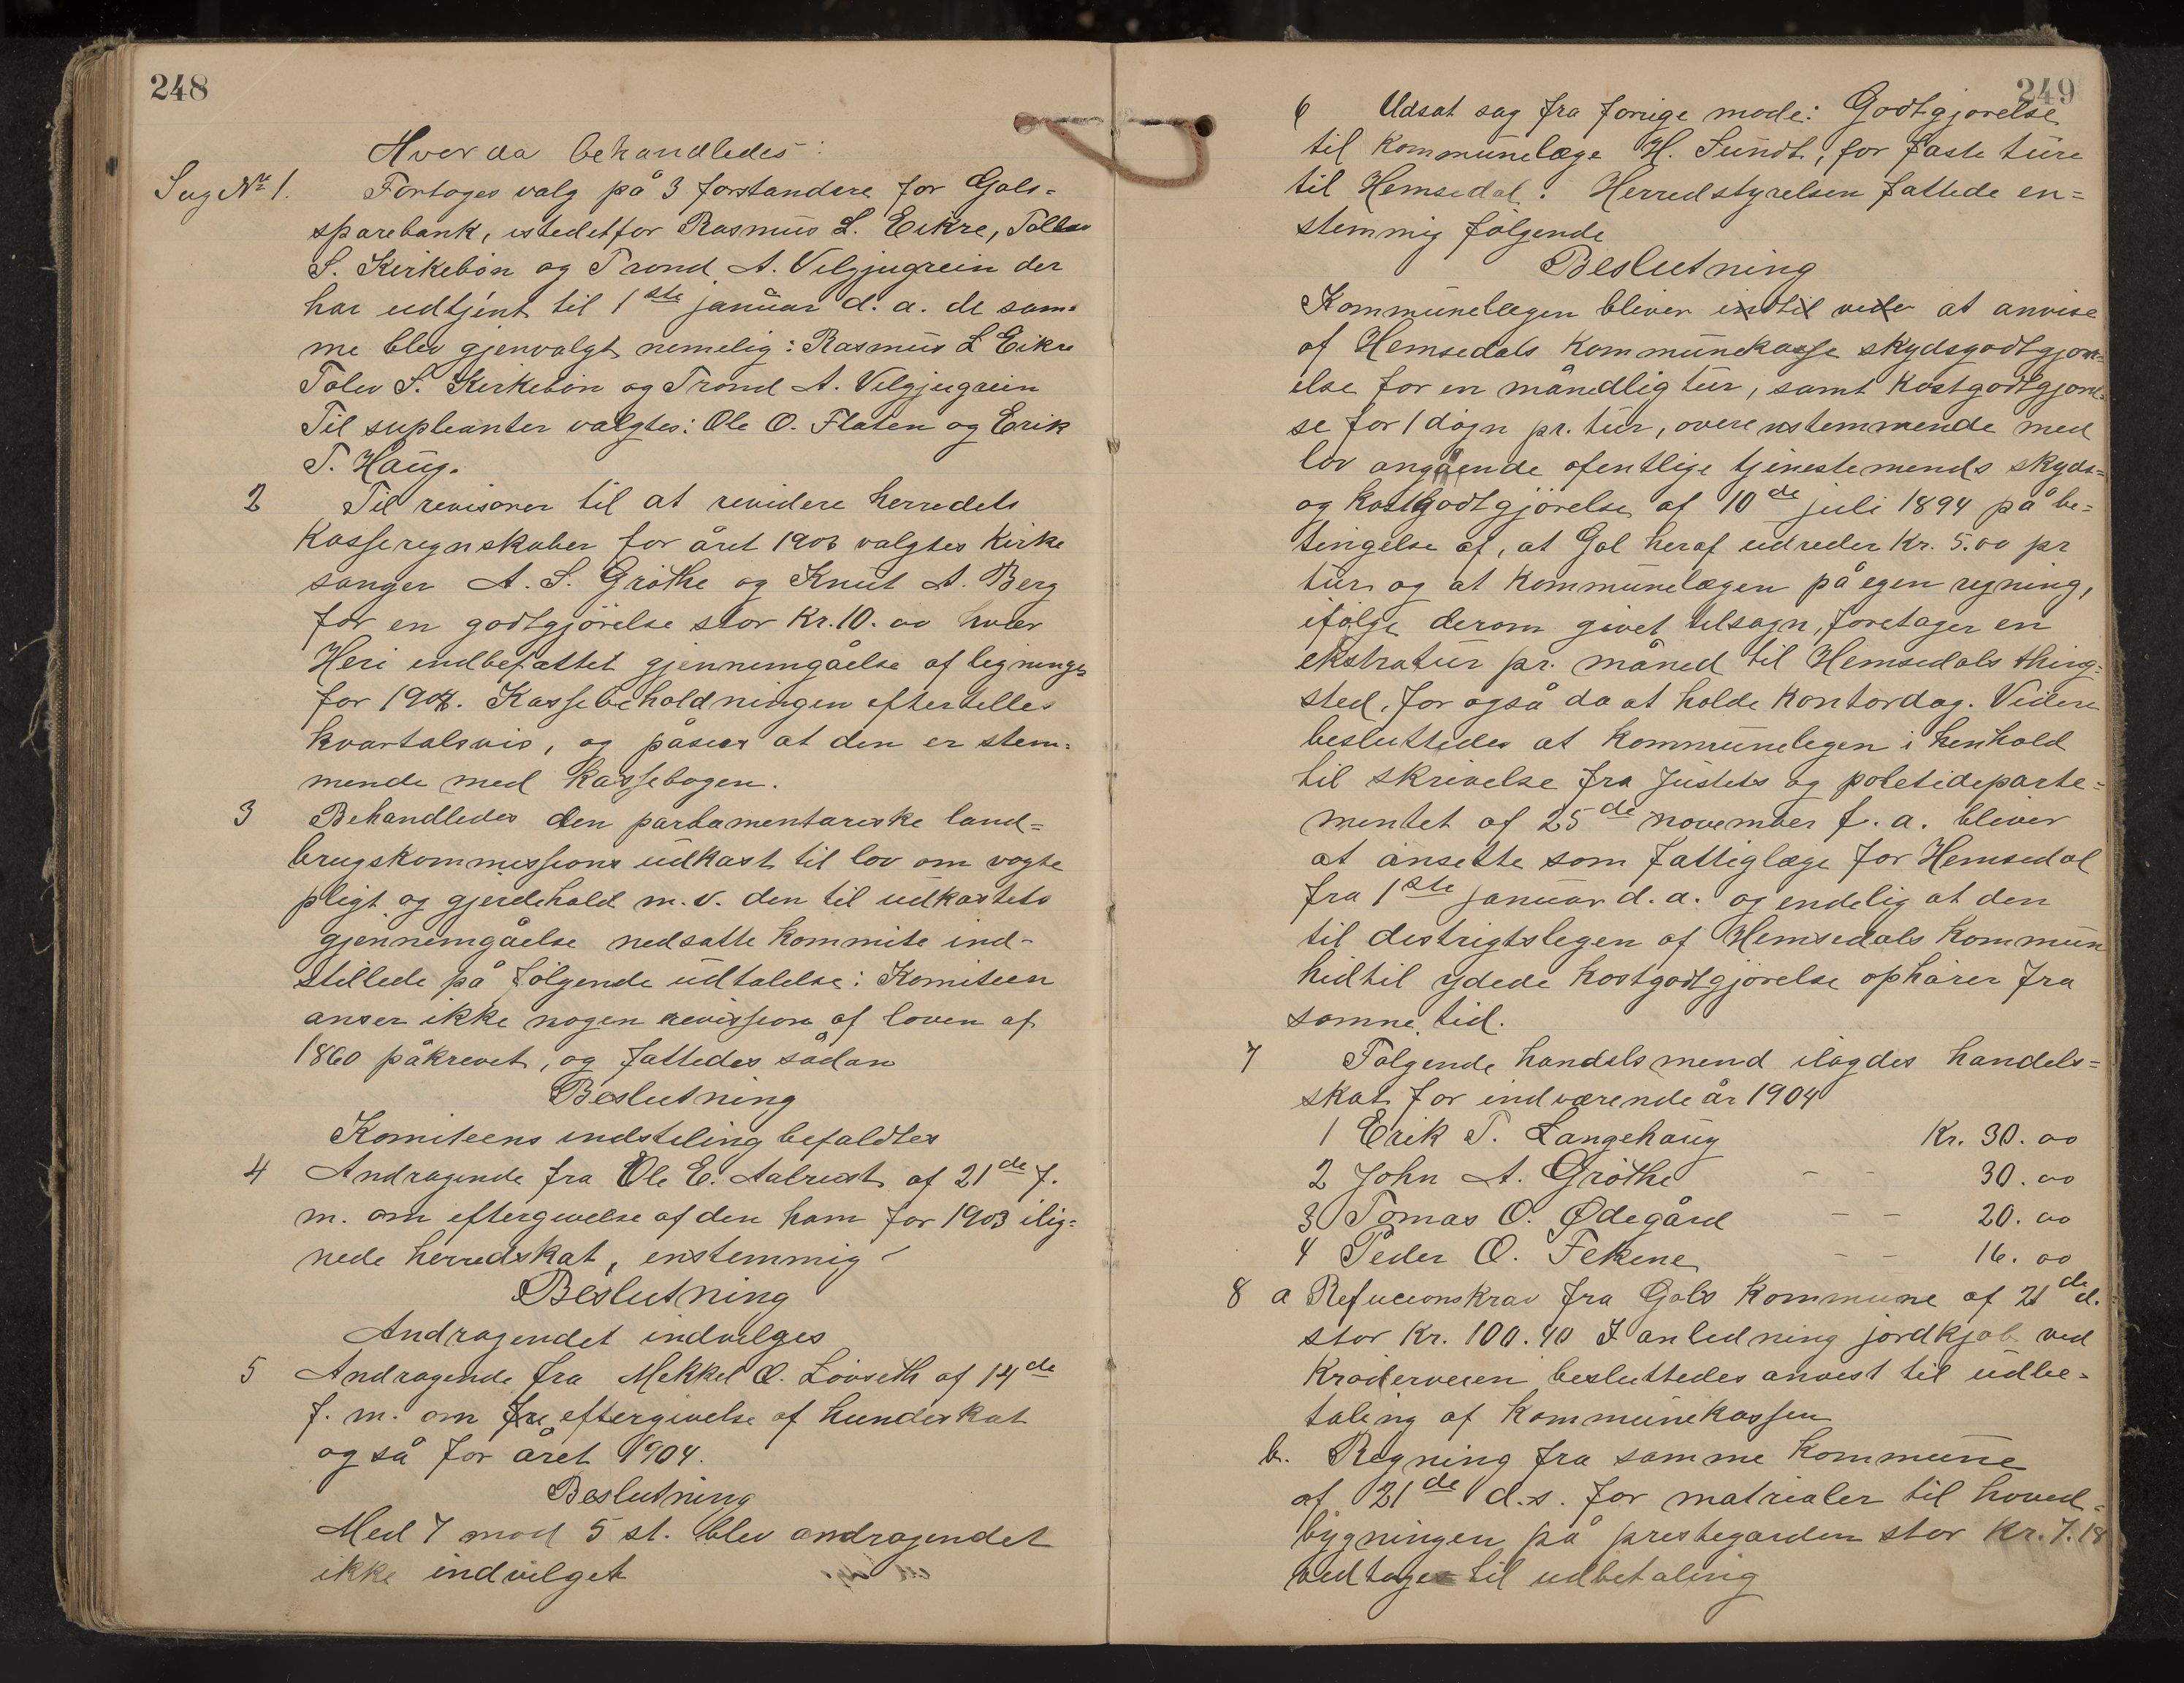 248
Hvor da behandledes:
Sag No 1. Fortoges valg på 3 forstandere for Gols=
sparebank, istedetfor Rasmus L. Eikre, Tollev
S. Kirkebön og Trond A. Velgjugrein der
har udtjent til 1ste januar d. a. de sam=
me blev gjenvalgt nemelig: Rasmus L Eikre
Tolev S. Kirkebön og Trond A. Velgjugrein
Til supleanter valgtes: Ole O. Flaten og Erik
T. Haug.
2 Til revisorer til at revidere herredets
Kasseregnskaber for året 1903 valgtes Kirke
sanger A. S. Gröthe og Knut A. Berg
for en godtgjörelse stor Kr. 10.00 hver
Heri indbefattet gjennemgåelse af lignings=
for 1904. Kassebeholdningen eftertelles
kvartalsvis, og påsees at den er stem=
mende med kassebogen.
3 Behandledes den parlamentariske land=
brugskommissions udkast til lov om vogte
pligt og gjerdehold m. v. den til udkastets
gjennemgåelse nedsatte kommite ind-
stillede på fölgende udtalelse: Komiteen
anser ikke nogen revission af loven af
1860 påkrevet, og fattedes sådan
Beslutning
Komiteens indsteling befaldtes
4 Andragende fra Ole E. Aalrust af 21de f.
m. om eftergivelse af den ham for 1903 ilig=
nede herredskat, enstemmig
Beslutning
Andragendet indvilges
5 Andragende fra Mekkel O. Lövseth af 14de
f. m. om fra eftergivelse af hundeskat
også for året 1904.
Beslutning
Med 7 mod 5 st. blev andragendet
ikke indvilget
249
6 Udsat sag fra forrige møde: Godtgjorelse
til kommunelæge H. Sundt, for faste ture
til Hemsedal. Herredstyrelsen fattede en=
stemmig fölgende
Beslutning
Kommunelægen bliver indtil vider at anvise
af Hemsedals Kommunekasse skydsgodtgjor=
else for en månedlig tur, samt kostgodtgjorel=
se for 1 dögn pr. tur, overensstemmende med
lov angående ofentlige tjenestemends skyds=
og kostgodtgjörelse af 10de juli 1894 på be=
tingelse af, at Gol heraf udreder Kr. 5.00 pr
tur og at kommunelægen på egen regning,
ifölge derom givet tilsagn, foretager en
ekstratur pr. måned til Hemsedals thing=
sted, for også da at holde kontordag. Videre
besluttedes at kommunelegen i henhold
til skrivelse fra Justets og poletideparte=
mentet af 25de november f. a. bliver
at ansette som fattiglæge for Hemsedal
fra 1ste januar d. a. og endelig at den
til destrigtslegen af Hemsedals kommune
hidtil ydede kostgodtgjörelse ophörer fra
samme tid.
7 Følgende handelsmend ilagdes handels=
skat for indværende år 1904
1 Erik T. Langehaug Kr. 30.00
2 John A. Gröthe - - 30.00
3 Tomas O. Ødegård - - 20.00
4 Peder O. Fekene - - 16.00
8 a Refucionskrav fra Gols kommune af 21de d.
stor Kr. 100.40 I anledning jordkjöb ved
Kröderveien besluttedes anvist til udbe=
taling af kommunekassen
b. Regning fra samme kommune
af 21de d.s. for matrialer til hoved=
bygningen på prestegården stor Kr. 7.18
vedtages til udbetaling